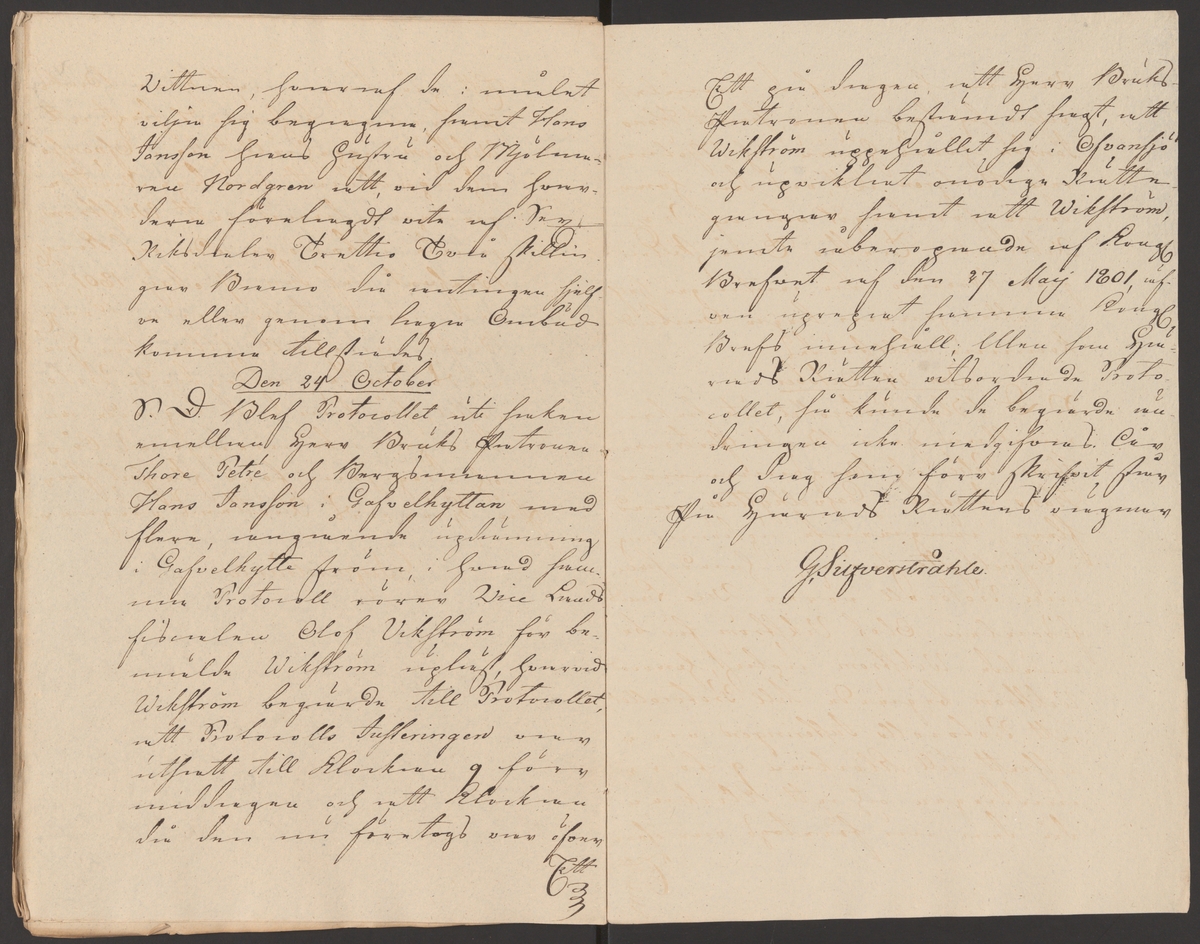 Vittnen, hvaraf de i målet
vilja sig begagna, samt Hans
Jansson hans hustru och Mjölna-
ren Nordgren att, vid dem hvar-
dera förelagdt vite af Sex
Riksdaler Trettio Två skillin-
gar Banco då antingen sjelf-
ve eller genom laga Ombud
komma tillstädes.
Den 24 October
S. D. Blef Protocollet uti saken
emellan Herr Bruks Patronen
Thore Petré och Bergsmannen
Hans Jansson i Gafvelhyttan med
flere, angående updämning
i Gafvelhytte ström, i hvad sam-
ma Protocoll rörer Vice Lands
fiscalen Olof Vikström för be-
mälde Wikström upläst, hvarvid
Wikström begärde till Protocollet,
att Protocolls Justeringen var
utsatt till Klockan 9 förr
middagen och att Klockan
då den nu företogs var öfver
Ett
Ett på dagen, att Herr Bruks-
Patronen bestämdt sagt, att
Wikström uppehållit sig i Ofvansjö
och upviklat onödiga Rätte-
gångar samt att Wikström,
jemte åberopande af Kongl.
Brefvet af den 27 Maij 1801, äf-
ven uprepat samma Kongl.
Brefs innehåll; Men som Hä-
rads Rätten vitsordade Proto-
collet, så kunde de begärde än-
dringen icke medgifvas. År
och Dag som förr skrifvit står
På Härads Rättens vägnar
G. Silfverstråhle.